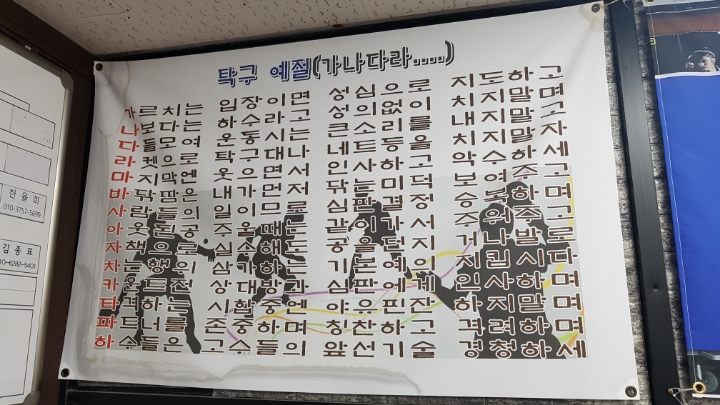 탁구 예절(가나다라....)
가르치는 입장이면 성심으로 지도하고
나보다는 하수라고 성의없이 치지말며
다들모여 운동시는 큰소리를 내지말고
라켓으로 탁구대나 네트등을 치지말자
마지막엔 웃으면서 인사하고 악수하세
바닥땀은 내가먼저 닦는미덕 보여주고
사람들의 일이므로 심판결정 승복하며
아웃된공 주울때는 같이가서 주워주고
자책으로 실수해도 공을던지 거나발로
차는행의 삼가하는 기본예의 지킵시다
카운트전 상대방과 심판에게 인사하며
타격하는 시합중엔 야유핀잔 하지말며
파트너를 존중하며 칭찬하고 격려하며
하수들은 고수들의 앞선기술 경청하세
한율희
010-3757-5699
김종표